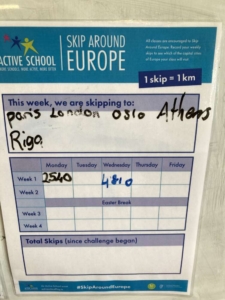 ACTIVE SCHOOL
SKIP AROUND
EUROPE
All classes are encouraged to Skip
Around Europe. Record your weekly
1 skip = 1 km
This week, we are skipping to:
Paris London Oslo Athens
Riga
Monday Tuesday Wednesday Thursday Friday
Week 1 2540 4810
Week 2
Easter Break
Week 3
Week 4
Total Skips (since challenge began)
#SkipAroundEurope